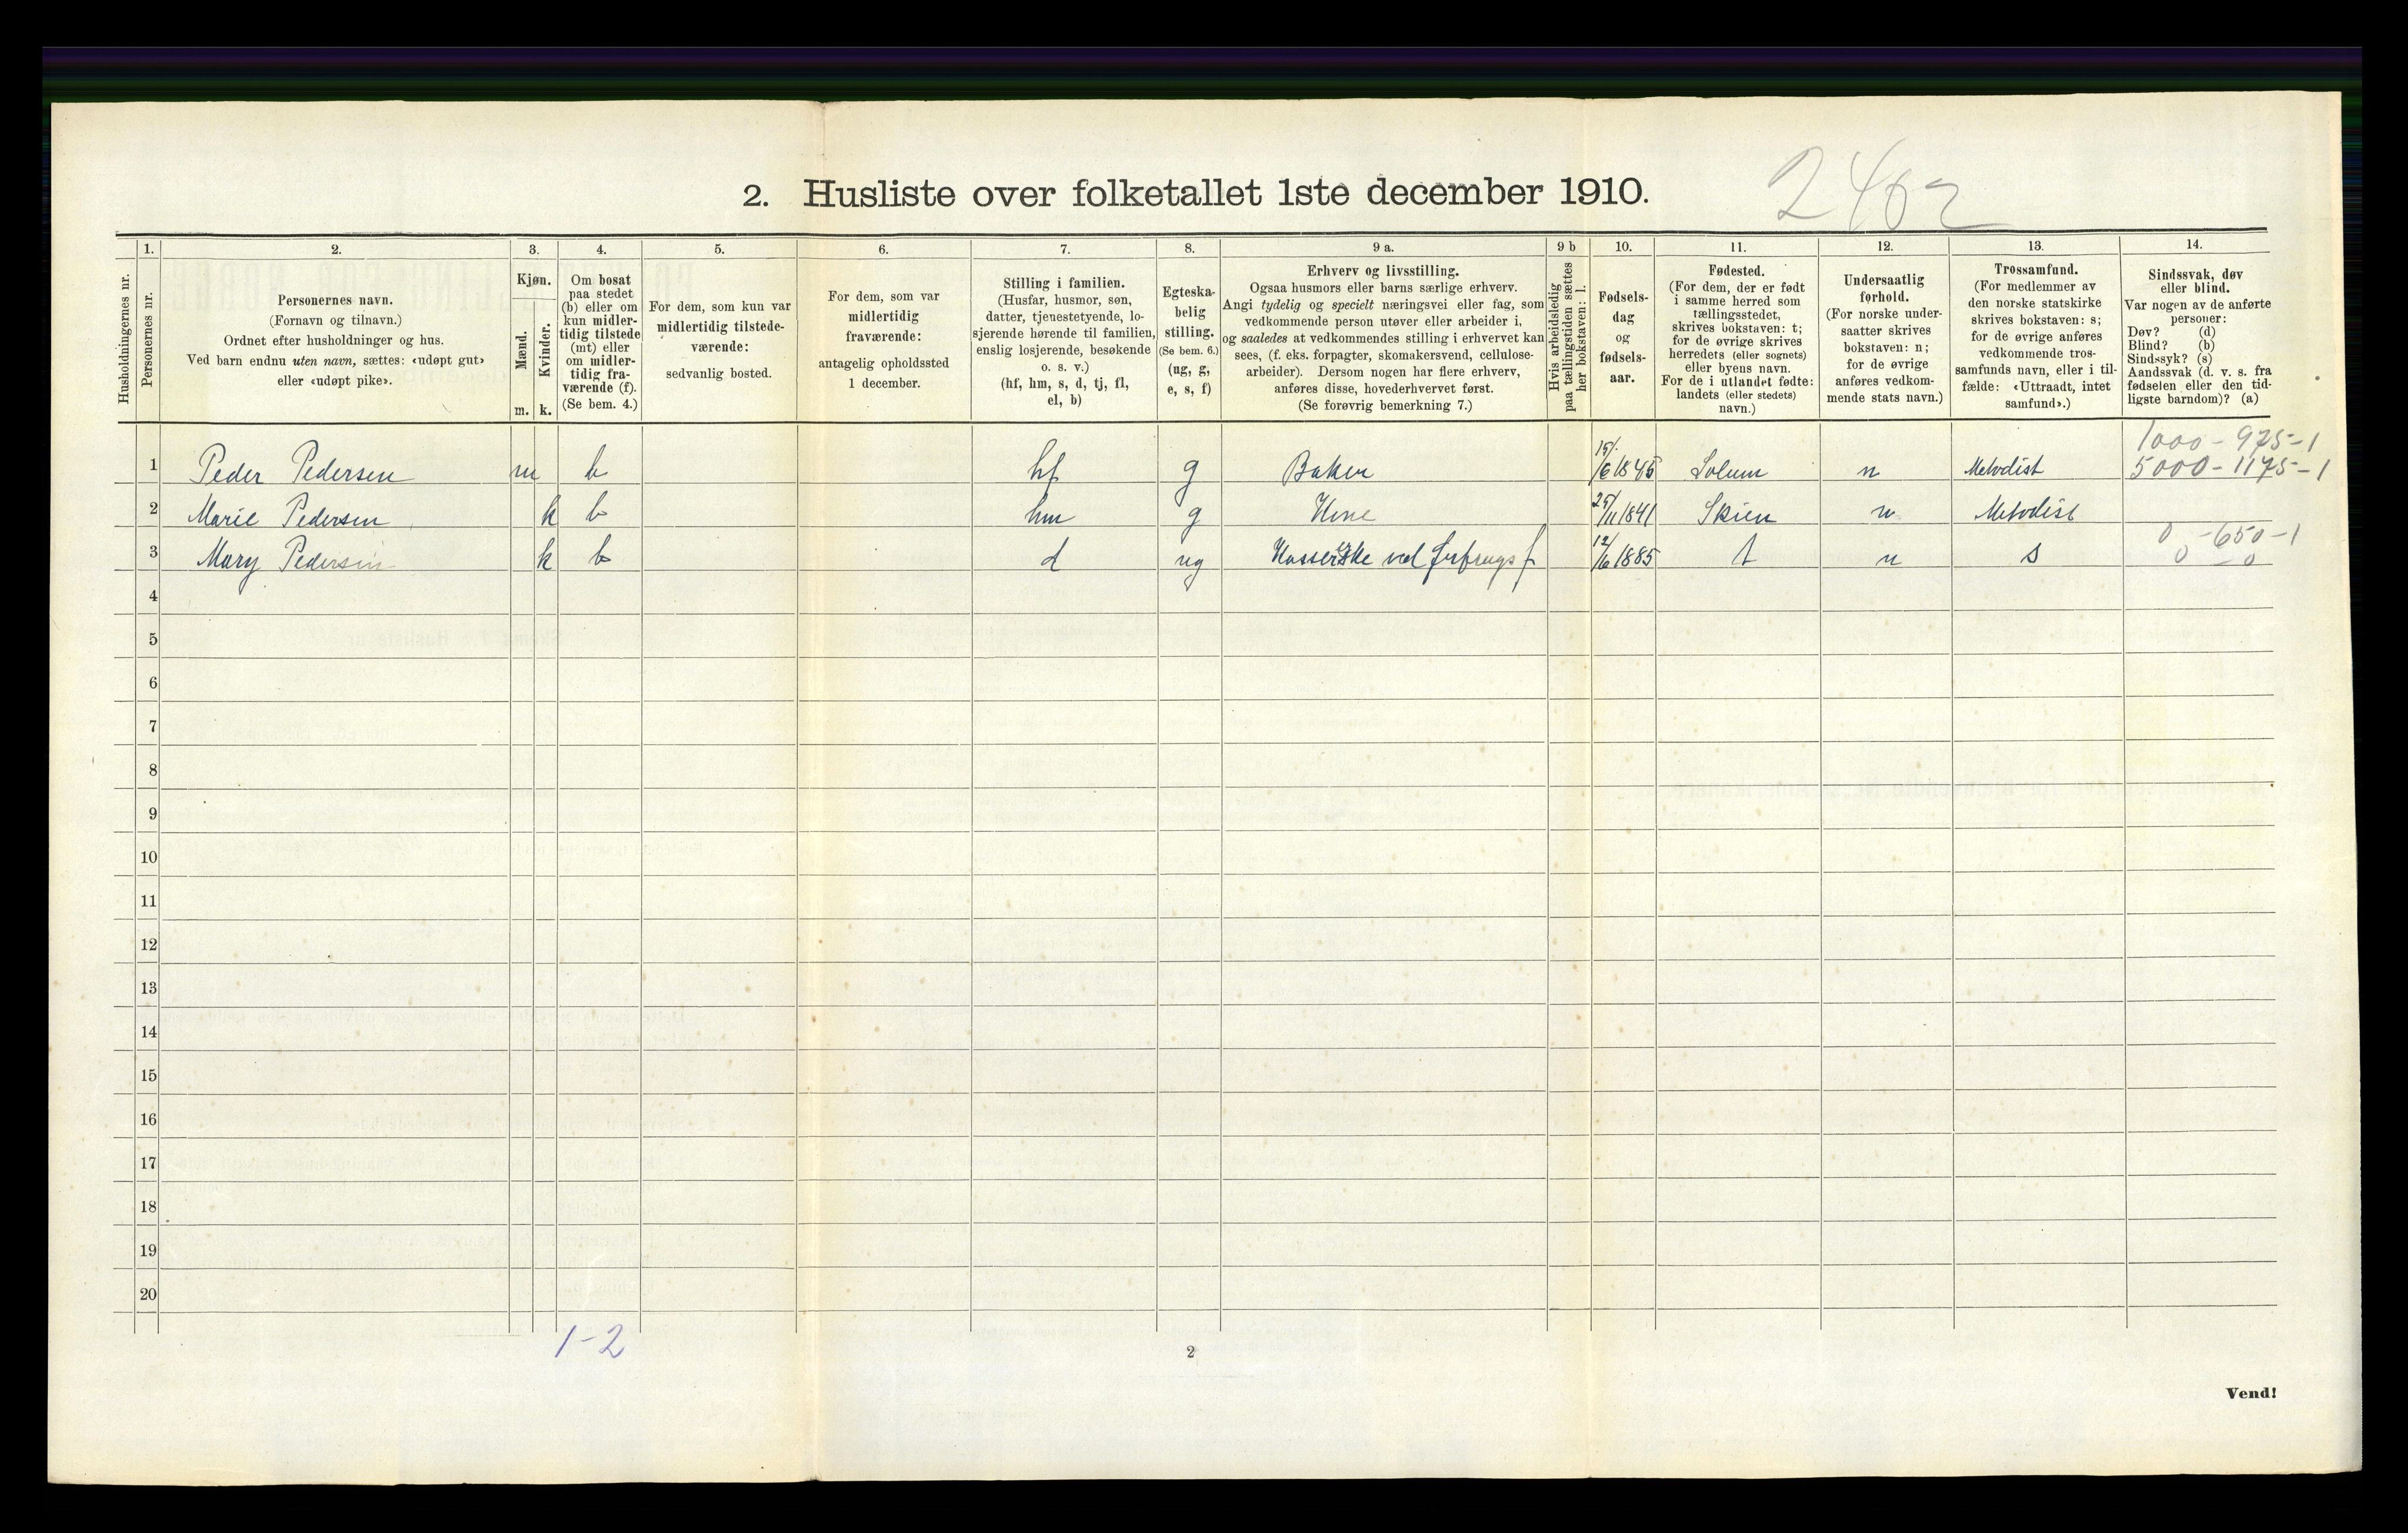 2. Husliste over folketallet 1ste december 1910.
2462
Husholdningernes nr.
1.
Personernes nr.
2.
Personernes navn.
(Fornavn og tilnavn.)
Ordnet efter husholdninger og hus.
Ved barn endnu uten navn, sættes: «udøpt gut»
eller «udøpt pike».
3.
Kjøn.
Mænd.
Kvinder.
m. k.
4.
Om bosat
paa stedet
(b) eller om
kun midler-
tidig tilstede
(mt) eller
om midler-
tidig fra-
værende (f).
(Se bem. 4.)
5.
For dem, som kun var
midlertidig tilstede-
værende:
sedvanlig bosted.
6.
For dem, som var
midlertidig
fraværende:
antagelig opholdssted
1 december.
7.
Stilling i familien.
(Husfar, husmor, søn,
datter, tjenestetyende, lo-
sjerende hørende til familien,
enslig losjerende, besøkende
o. s. v.)
(hf, hm, s, d, tj, fl,
el, b)
8.
Egteska-
belig
stilling.
(Se bem. 6.)
(ug, g,
e, s, f)
9 a.
Erhverv og livsstilling.
Ogsaa husmors eller barns særlige erhverv.
Angi tydelig og specielt næringsvei eller fag, som
vedkommende person utøver eller arbeider i,
og saaledes at vedkommendes stilling i erhvervet kan
sees, (f. eks. forpagter, skomakersvend, cellulose-
arbeider). Dersom nogen har flere erhverv,
anføres disse, hovederhvervet først.
(Se forøvrig bemerkning 7.)
9 b
Hvis arbeidsledig
paa tællingstiden sættes
her bokstaven: l.
10.
Fødsels-
dag
og
fødsels-
aar.
11.
Fødested.
(For dem, der er født
i samme herred som
tællingsstedet,
skrives bokstaven: t;
for de øvrige skrives
herredets (eller sognets)
eller byens navn.
For de i utlandet fødte:
landets (eller stedets)
navn.)
12.
Undersaatlig
forhold.
(For norske under-
saatter skrives
bokstaven: n;
for de øvrige
anføres vedkom-
mende stats navn.)
13.
Trossamfund.
(For medlemmer av
den norske statskirke
skrives bokstaven: s;
for de øvrige anføres
vedkommende tros-
samfunds navn, eller i til-
fælde: «Uttraadt, intet
samfund».)
14.
Sindssvak, døv
eller blind.
Var nogen av de anførte
personer:
Døv? (d)
Blind? (b)
Sindssyk? (s)
Aandssvak (d. v. s. fra
fødselen eller den tid-
ligste barndom)? (a)
1000 - 975 - 1
1 Peder Pedersen m b hf g Baker 15/6 1845 Solum n Metodist 5000 - 1175 - 1
2 Marie Pedersen k b hm g Kone 25/11 1841 Skien n Metodist
0 - 650 - 1
3 Mary Pedersen k b d ug ved 12/6 1885 t n s 0 - 0
4
5
6
7
8
9
10
11
12
13
14
15
16
17
18
19
20
1-2
2
Vend!